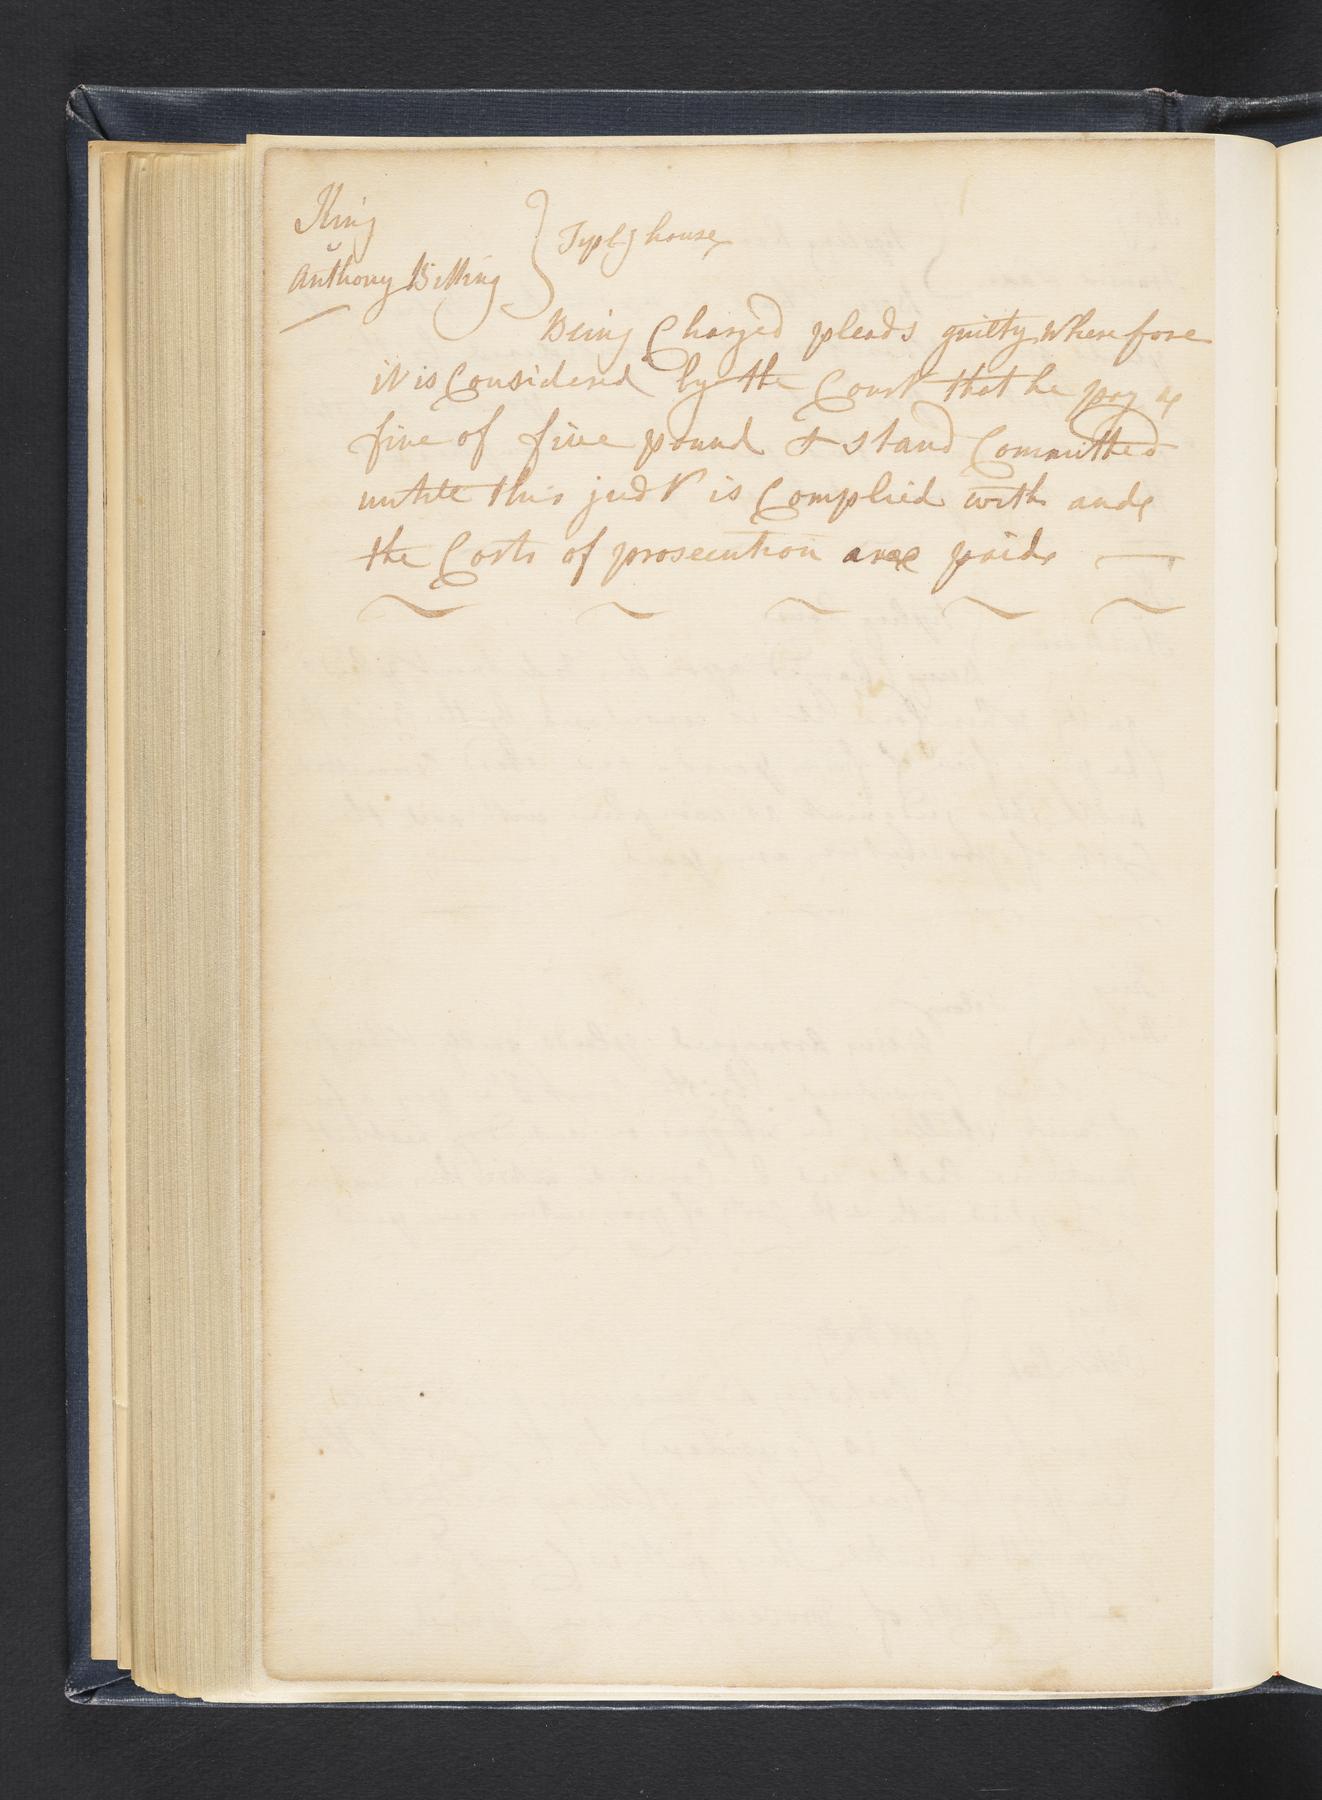 King
v
Anthony Billing } Typlg house
Being Charged pleads guilty Wherefore
it is Considered by the Court that he pay a
fine of five pound & stand Committed
untile this judt is Complied with and
the Costs of prosecution are paid